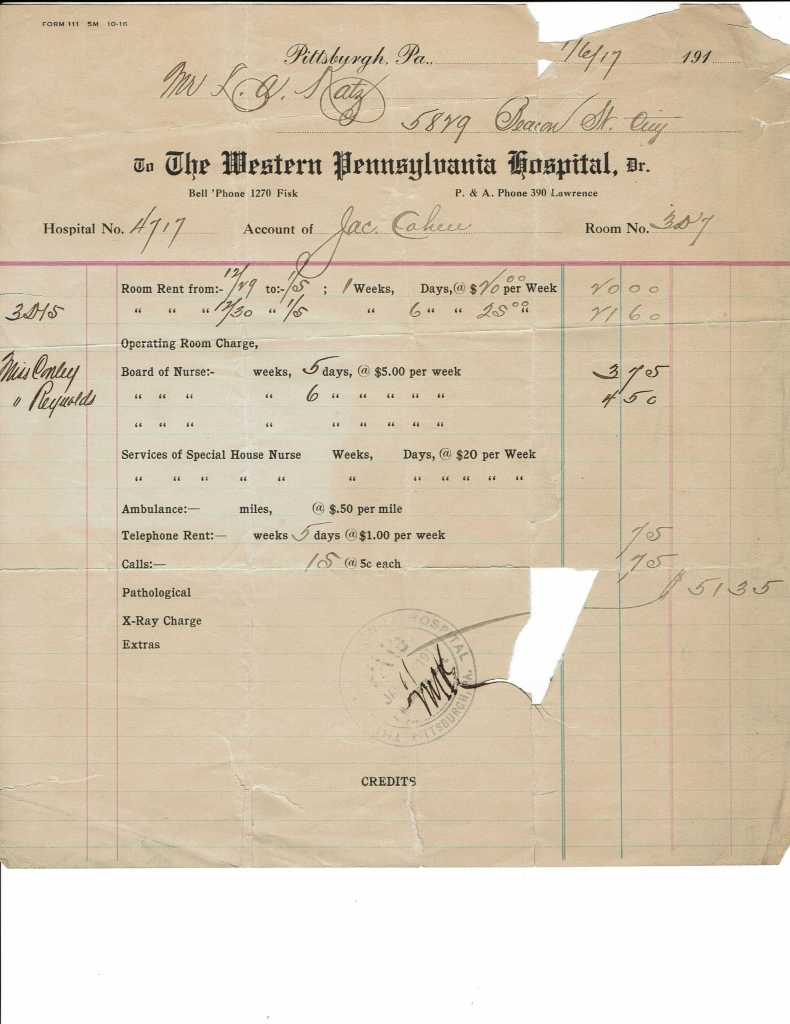 FORM 111 5M 10-16
Pittsburgh, Pa., 1/6/17 191
Mr L. A. Katz
5829 Beacon St. City
To The Western Pennsylvania Hospital, Dr.
Bell 'Phone 1270 Fisk P. & A. Phone 390 Lawrence
Hospital No. 4717 Account of Jac. Cohen Room No. 3D7
Room Rent from:- 12/29 to:- 1/5 ; 1 Weeks, Days, @ $20.00 per Week 20 00
3D15 " " " 12/30 " 1/5 " 6 " " 25.00 " 21 60
Operating Room Charge,
Miss Conley Board of Nurse:- weeks, 5 days, @ $5.00 per week 3 75
" Reynolds " " " " 6 " " " " " 4 50
" " " " " " " " "
Services of Special House Nurse Weeks, Days, @ $20 per Week
" " " " " " " " " " "
Ambulance:— miles, @ $.50 per mile
Telephone Rent:— weeks 5 days @ $1.00 per week 75
Calls:— 15 @ 5c each 75
Pathological $ 51 35
X-Ray Charge
Extras
HOSPITAL
PITTSBURGH, PA.
CREDITS